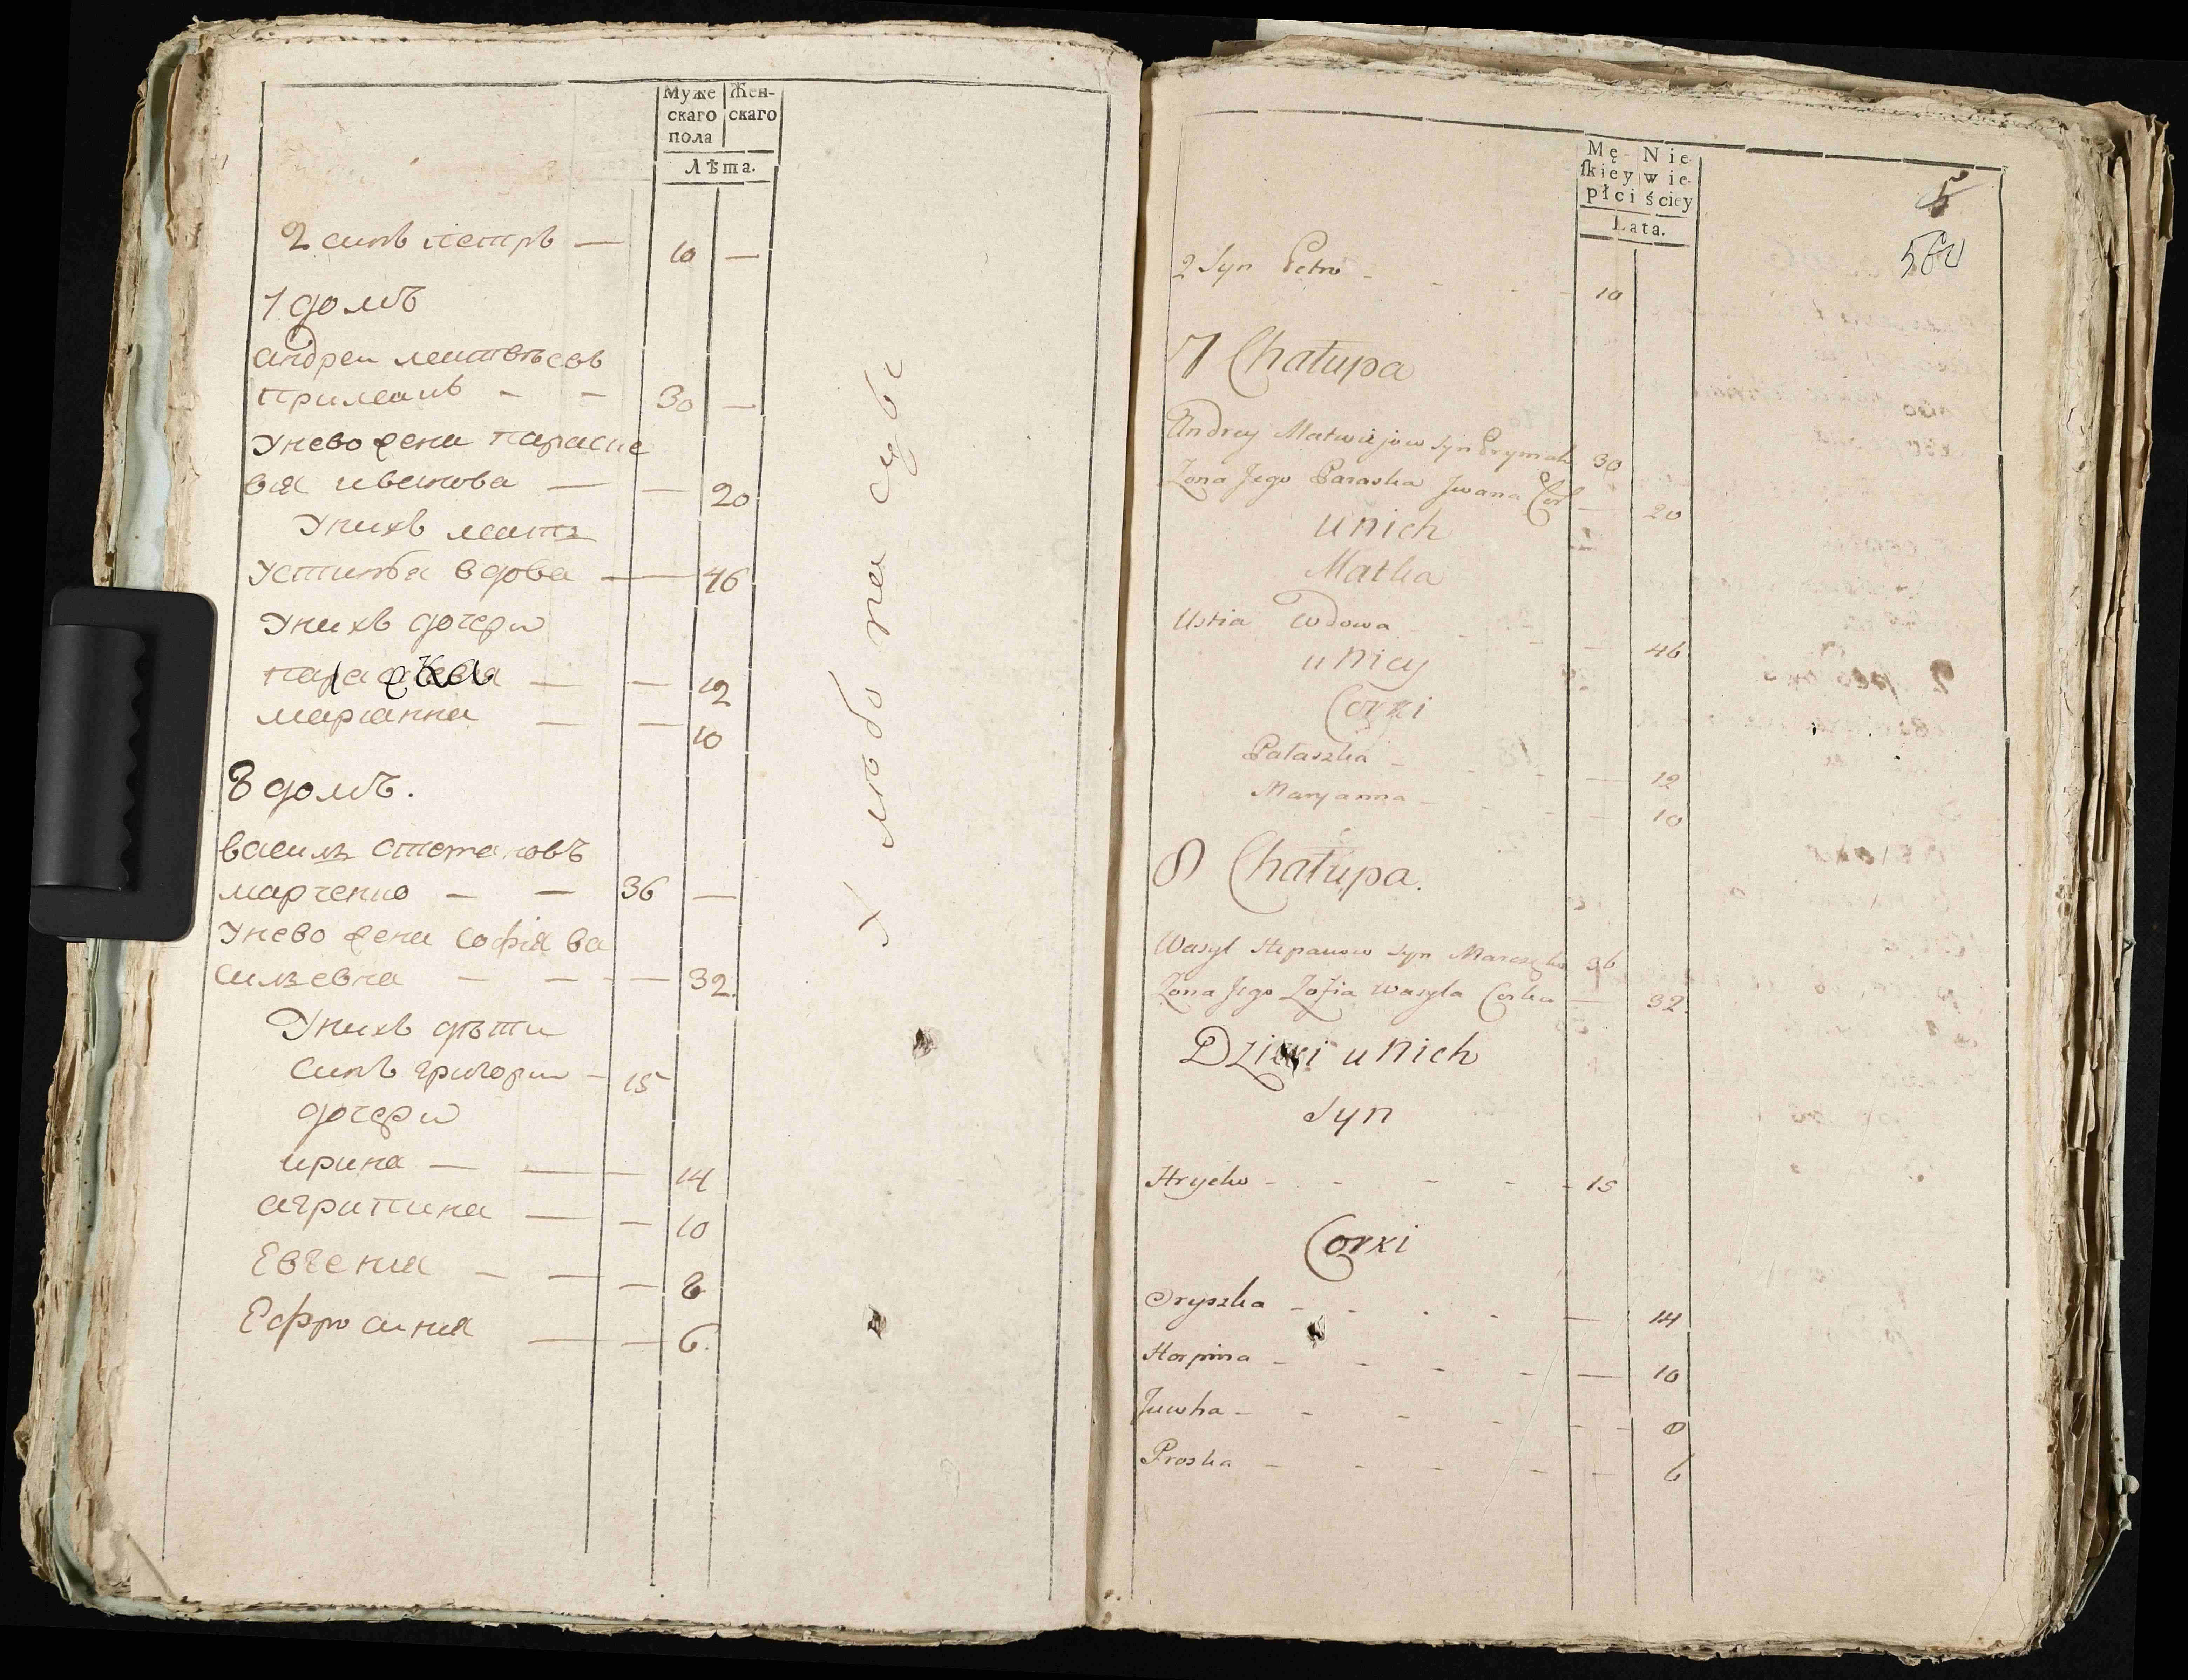 Муже Жен-
скаго скаго
пола
Лѣта.
2 синъ петръ — 10 —
7 домъ
андреи матвѣевъ
примакъ - - 30 —
Унево жена параске
вия иванова — — 20
Унихъ мать
Устинъя вдова — 46
Унихъ дочери
параска — — 12
марианна — — 10
8 домъ.
василь степановъ
марченко — — 36 —
Унево жена софия ва
сильевна — — - — 32.
Унихъ дѣти
синъ григории - 15
дочери
ирина — — — 14
агрипина — — 10
Евгения — — — 8
Ефросиния — — 6.
Mę- Nie
skiey wie-
płci ściey
Lata.
5
2 Syn Petro - - - - 10
7 Chałupa
Andrey Matwiejow syn Prymak 30
Zona Jego Paraska Jwana Cor — 20
u nich
Matka
Ustia Wdowa - - - — 46
u Niey
Corki
Pałaszka - - - — 12
Maryanna - - - 10
8 Chałupa.
Wasyl Stepanow syn Marczęko 36
Zona Jego Zofia Wasyla Corka — 32.
Dzieci u Nich
Syn
Hryćko - - - - - 15
Corki
Oryszka - - - - — 14
Horpina - - - - — 10
Juwha - - - - - - 8
Proska - - - - - 6